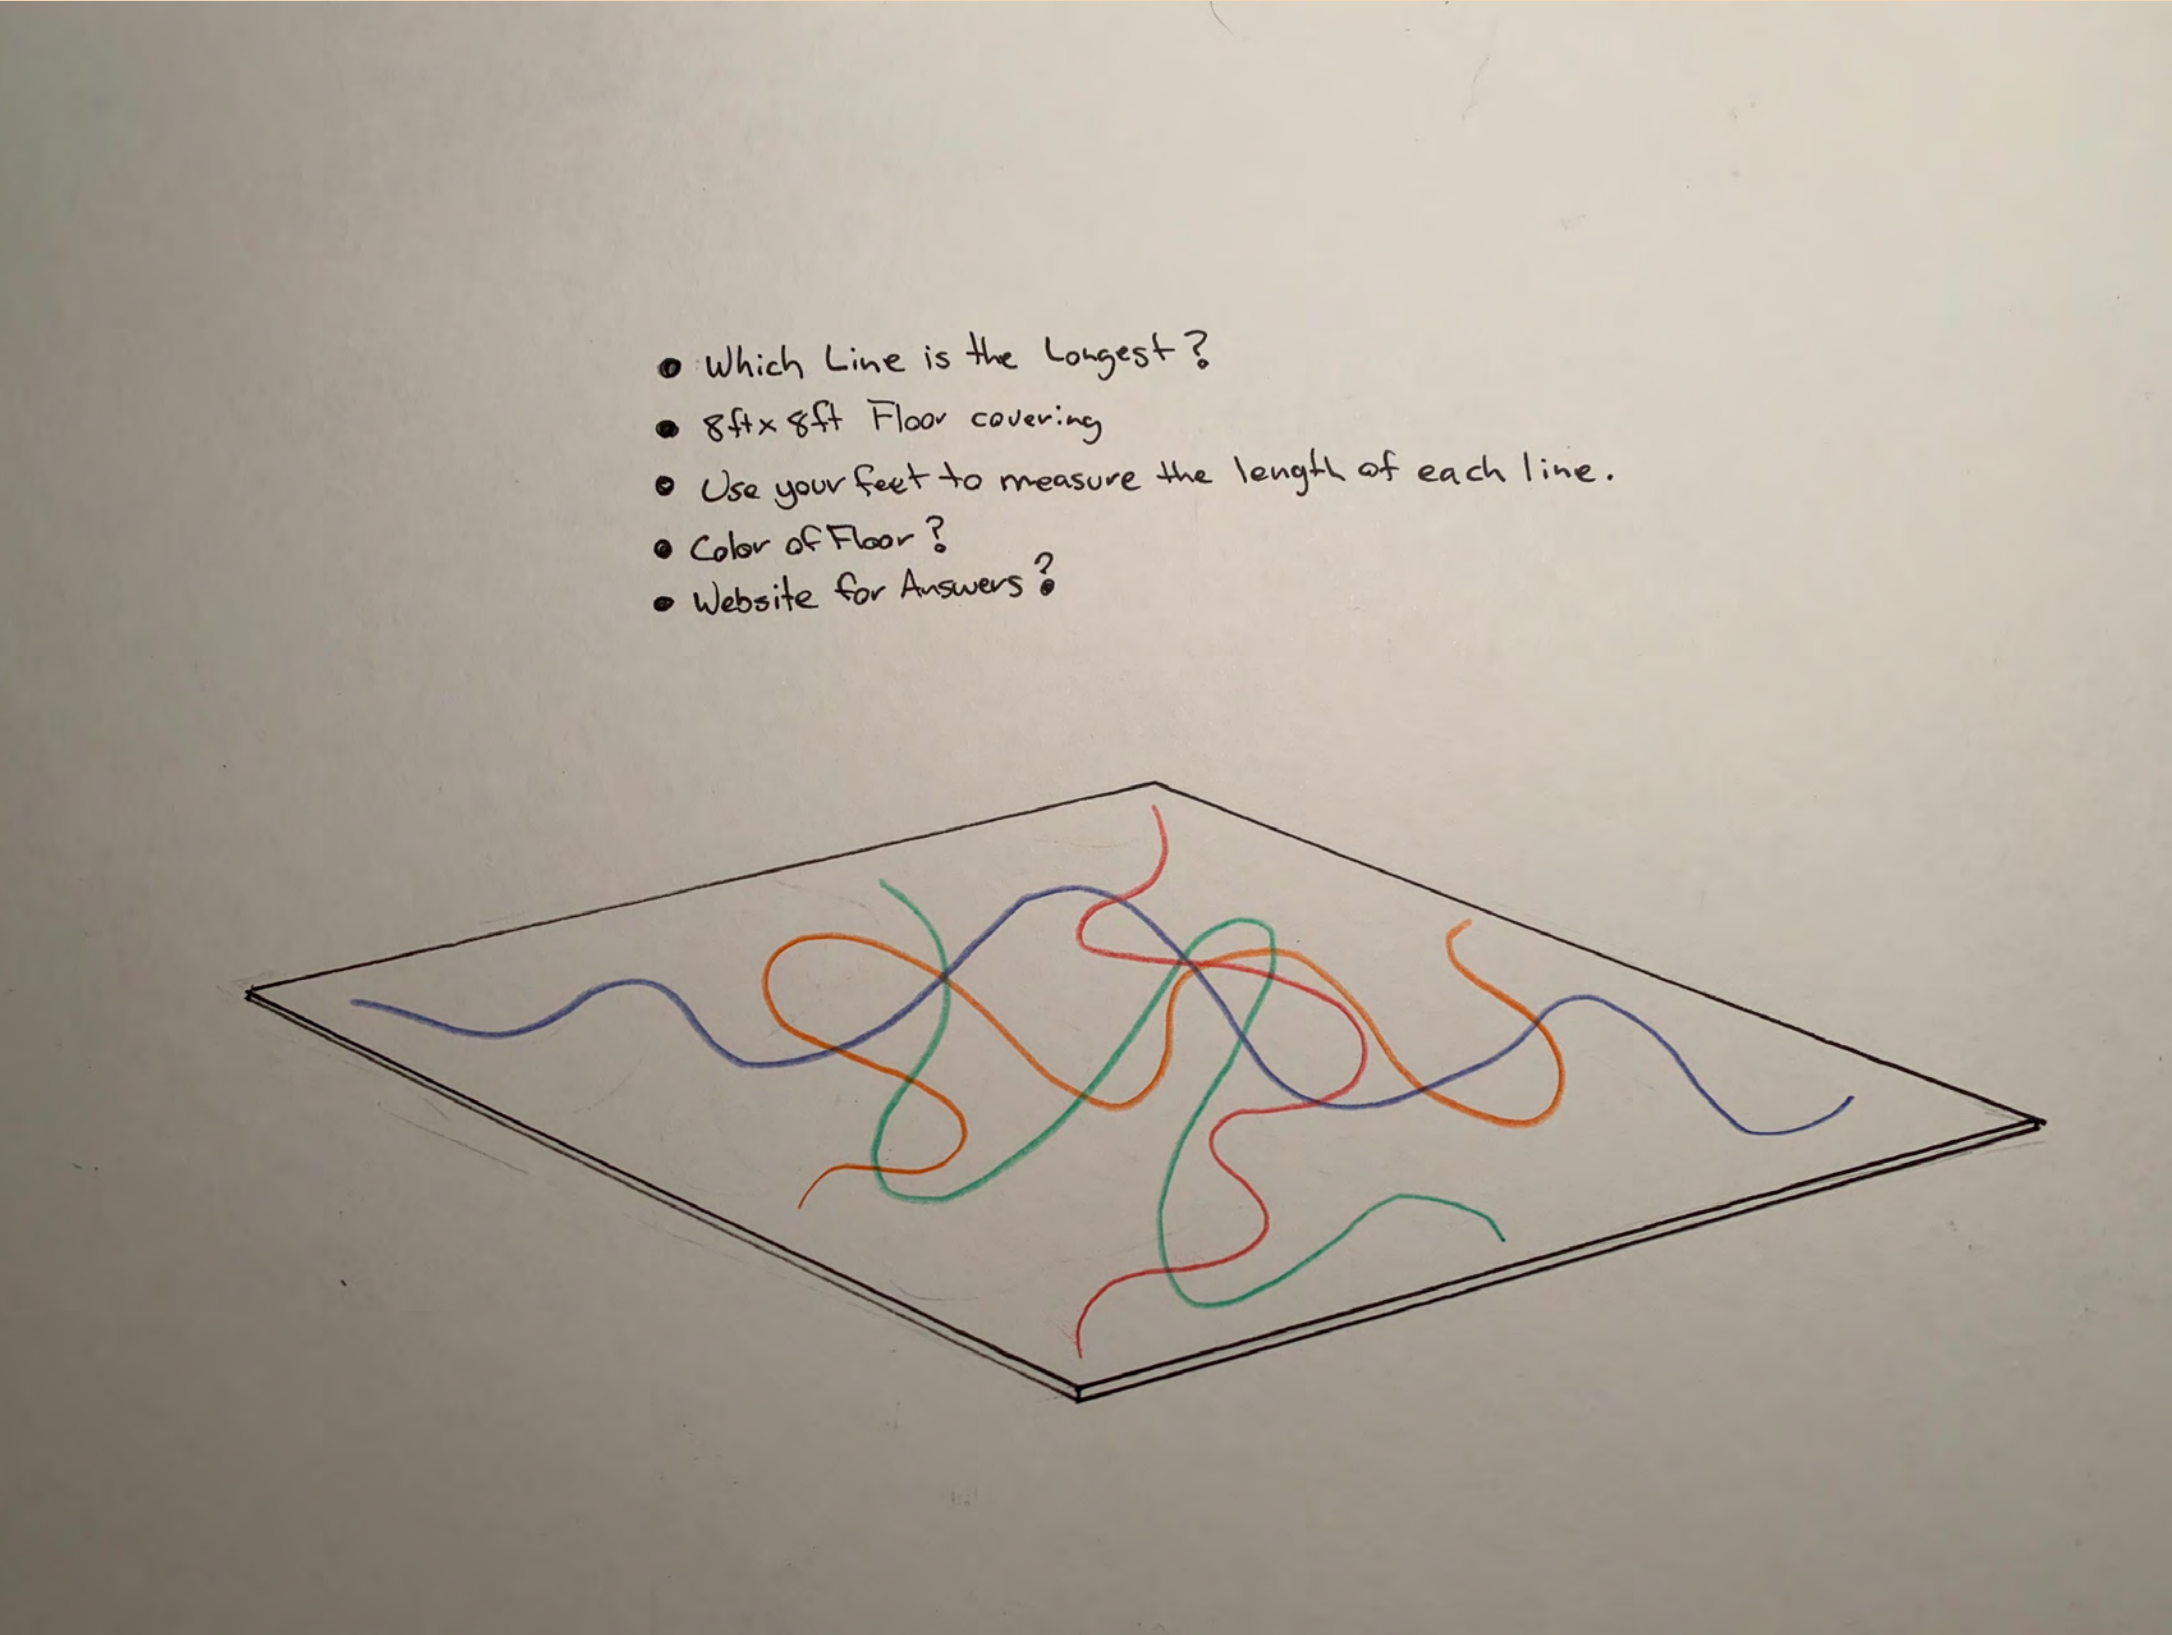 • Which Line is the Longest?
• 8ft x 8ft Floor covering
• Use your feet to measure the length of each line.
• Color of Floor?
• Website for Answers?